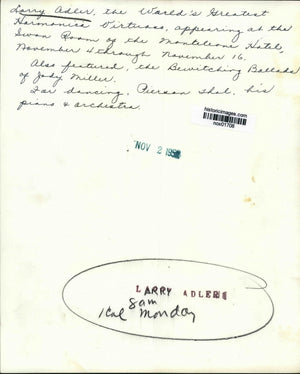 Larry Adler, the World's Greatest
Harmonica Virtuoso, appearing at the
Swan Room of the Monteleone Hotel,
November 4 through November 16.
Also featured, the Bewitching Ballads
of Jody Miller.
For dancing, Pierson Thal, his
piano & orchestra.
historicimages.com
nox01708
NOV 2 195
LARRY ADLER
8am
1 col Monday